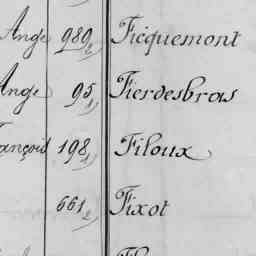 Ange 989/2 Ficquemont
Ange 95/1 Fierdesbras
ançois 198/1 Filoux
661/2 Fixot